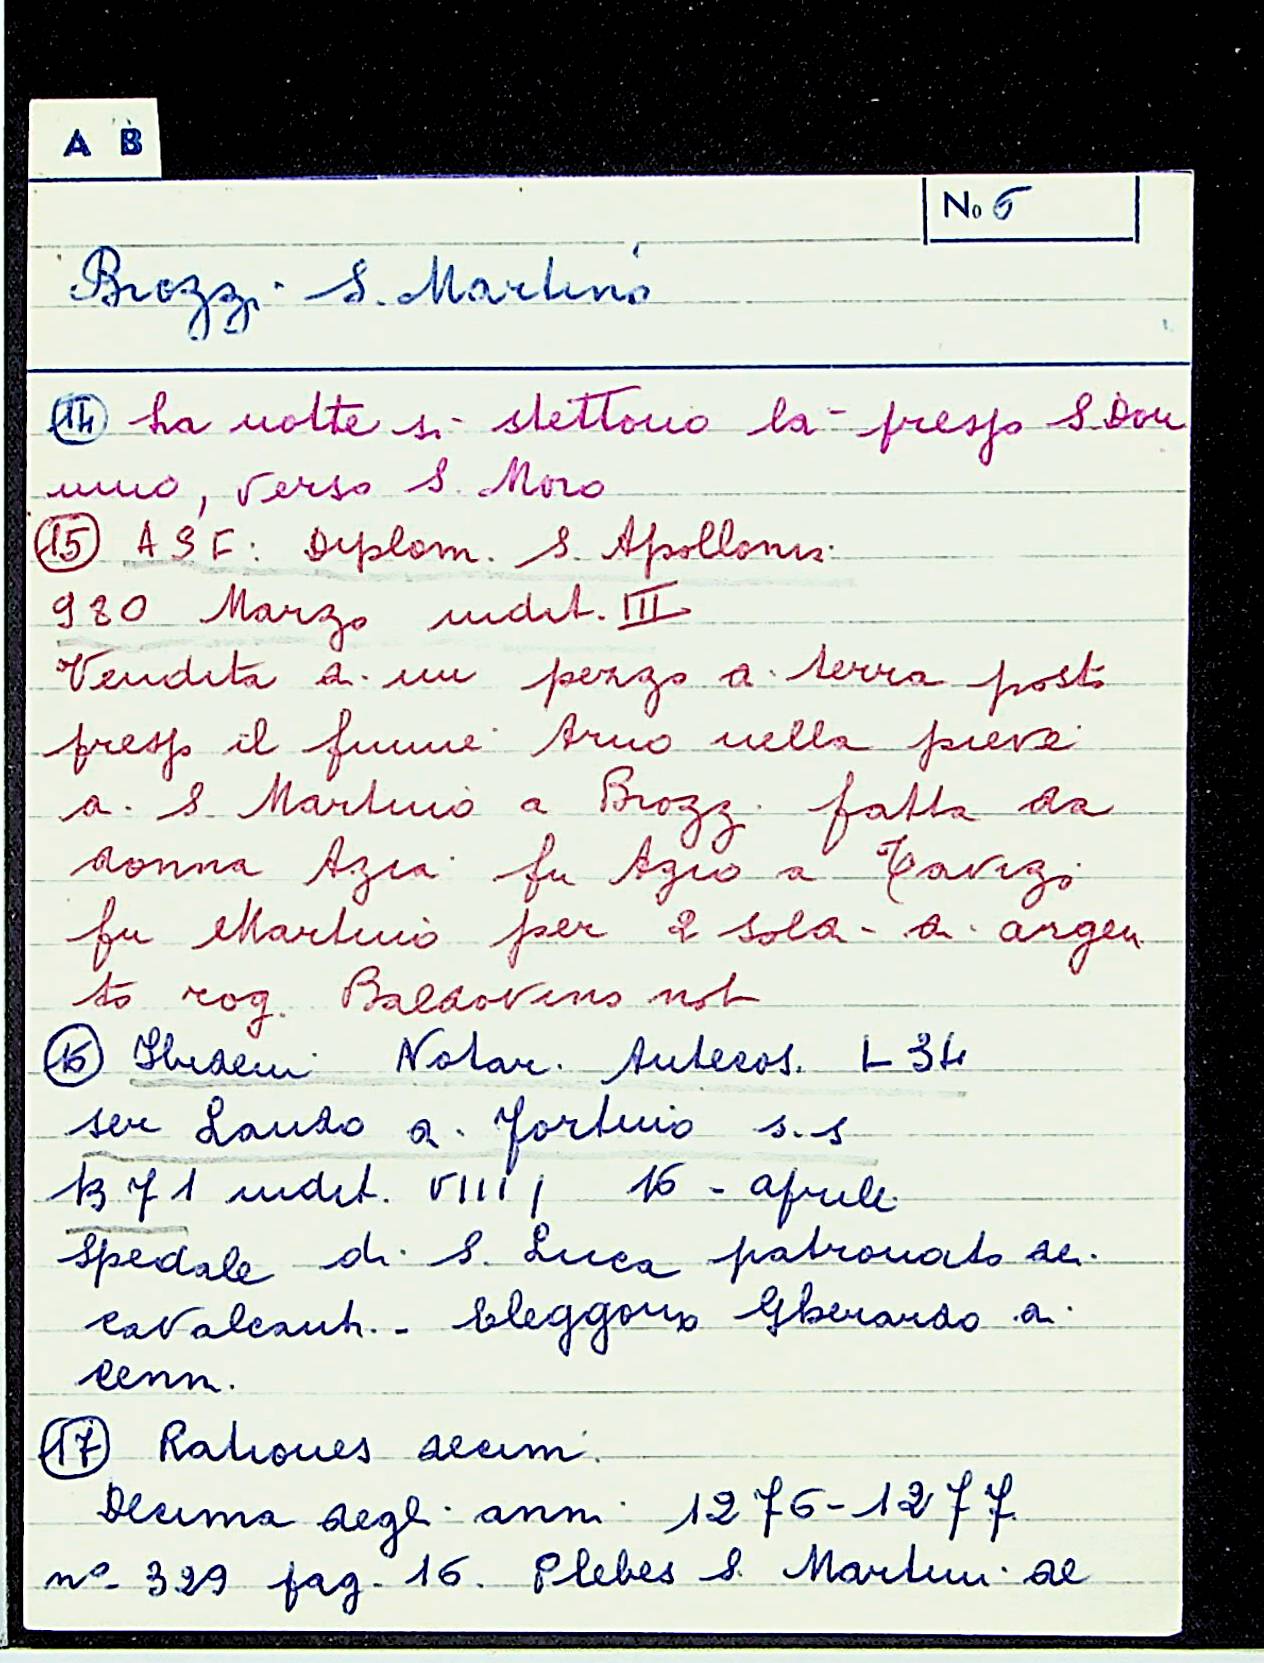 A B
No 6
Brozzi - S. Martino
14 La notte si stettono là presso S. Don
nino, verso S. Moro
15 A S F: Diplom. S. Apollonia
980 Marzo indit. III
Vendita di un pezzo di terra posto
presso il fiume Arno nella pieve
di S. Martino a Brozzi fatta da
donna Azia fu Azio a Tavizo
fu Martino per 2 soldi di argen
to rog. Baldovino not
16 Ibidem Notar. Antecos. L 34
ser Lando di Fortino s.s
1371 indit. VIIII, 16 - aprile
Spedale di S. Luca patronato dei
Cavalcanti. - Eleggono Gherardo di
Cenni.
17 Rationes decim.
Decima degli anni 1276-1277
n° 329 pag. 16. Plebes S. Martini de